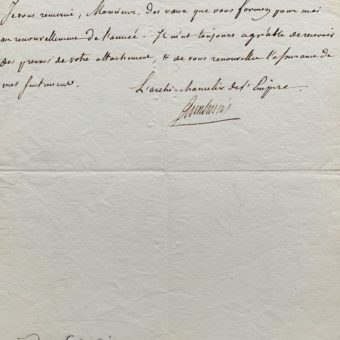 Je vous remercie, Monsieur, des vœux que vous formez pour moi
au renouvellement de l'année. Il m'est toujours agréable de recevoir
des preuves de votre attachement, & de vous renouveller l'assurance de
mes sentimens.
L'archi-chancelier de l'Empire